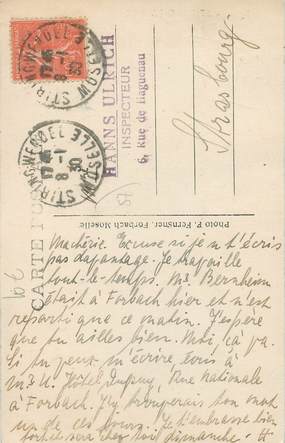 STIRING WENDEL
MOSELLE
17 45
8 - 1
30
STIRING WENDEL
MOSELLE
17 45
8 - 1
30
HANNS ULRICH
INSPECTEUR
6, Rue de Haguenau
Strasbourg
CARTE POSTALE
Photo P. Fernsner, Forbach Moselle
57
Ma chérie. Excuse si je n't'écris
pas davantage. Je travaille
tout le temps. Mr. Bernheim
était à Forbach hier et n'est
reparti que ce matin. J'espère
que tu ailles bien. Moi, ça va.
Si tu peux m'écrire écris à
Hôtel Dupuy, Rue Nationale
à Forbach. J'y trouverais ton mot
un de ces jours. Je t'embrasse bien
fort et serai chez toi dimanche. H